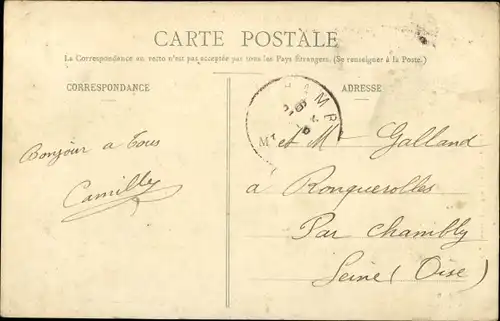 CARTE POSTALE
La Correspondance au recto n'est pas acceptée par tous les Pays Étrangers. (Se renseigner à la Poste.)
CORRESPONDANCE
ADRESSE
Bonjour a tous
Camille
M et Me Galland
à Ronquerolles
Par Chambly
Seine (Oise)